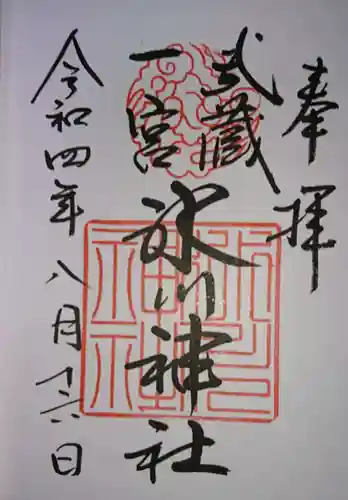 奉拝
武蔵
一宮
氷川神社
令和四年八月十六日
氷川神社